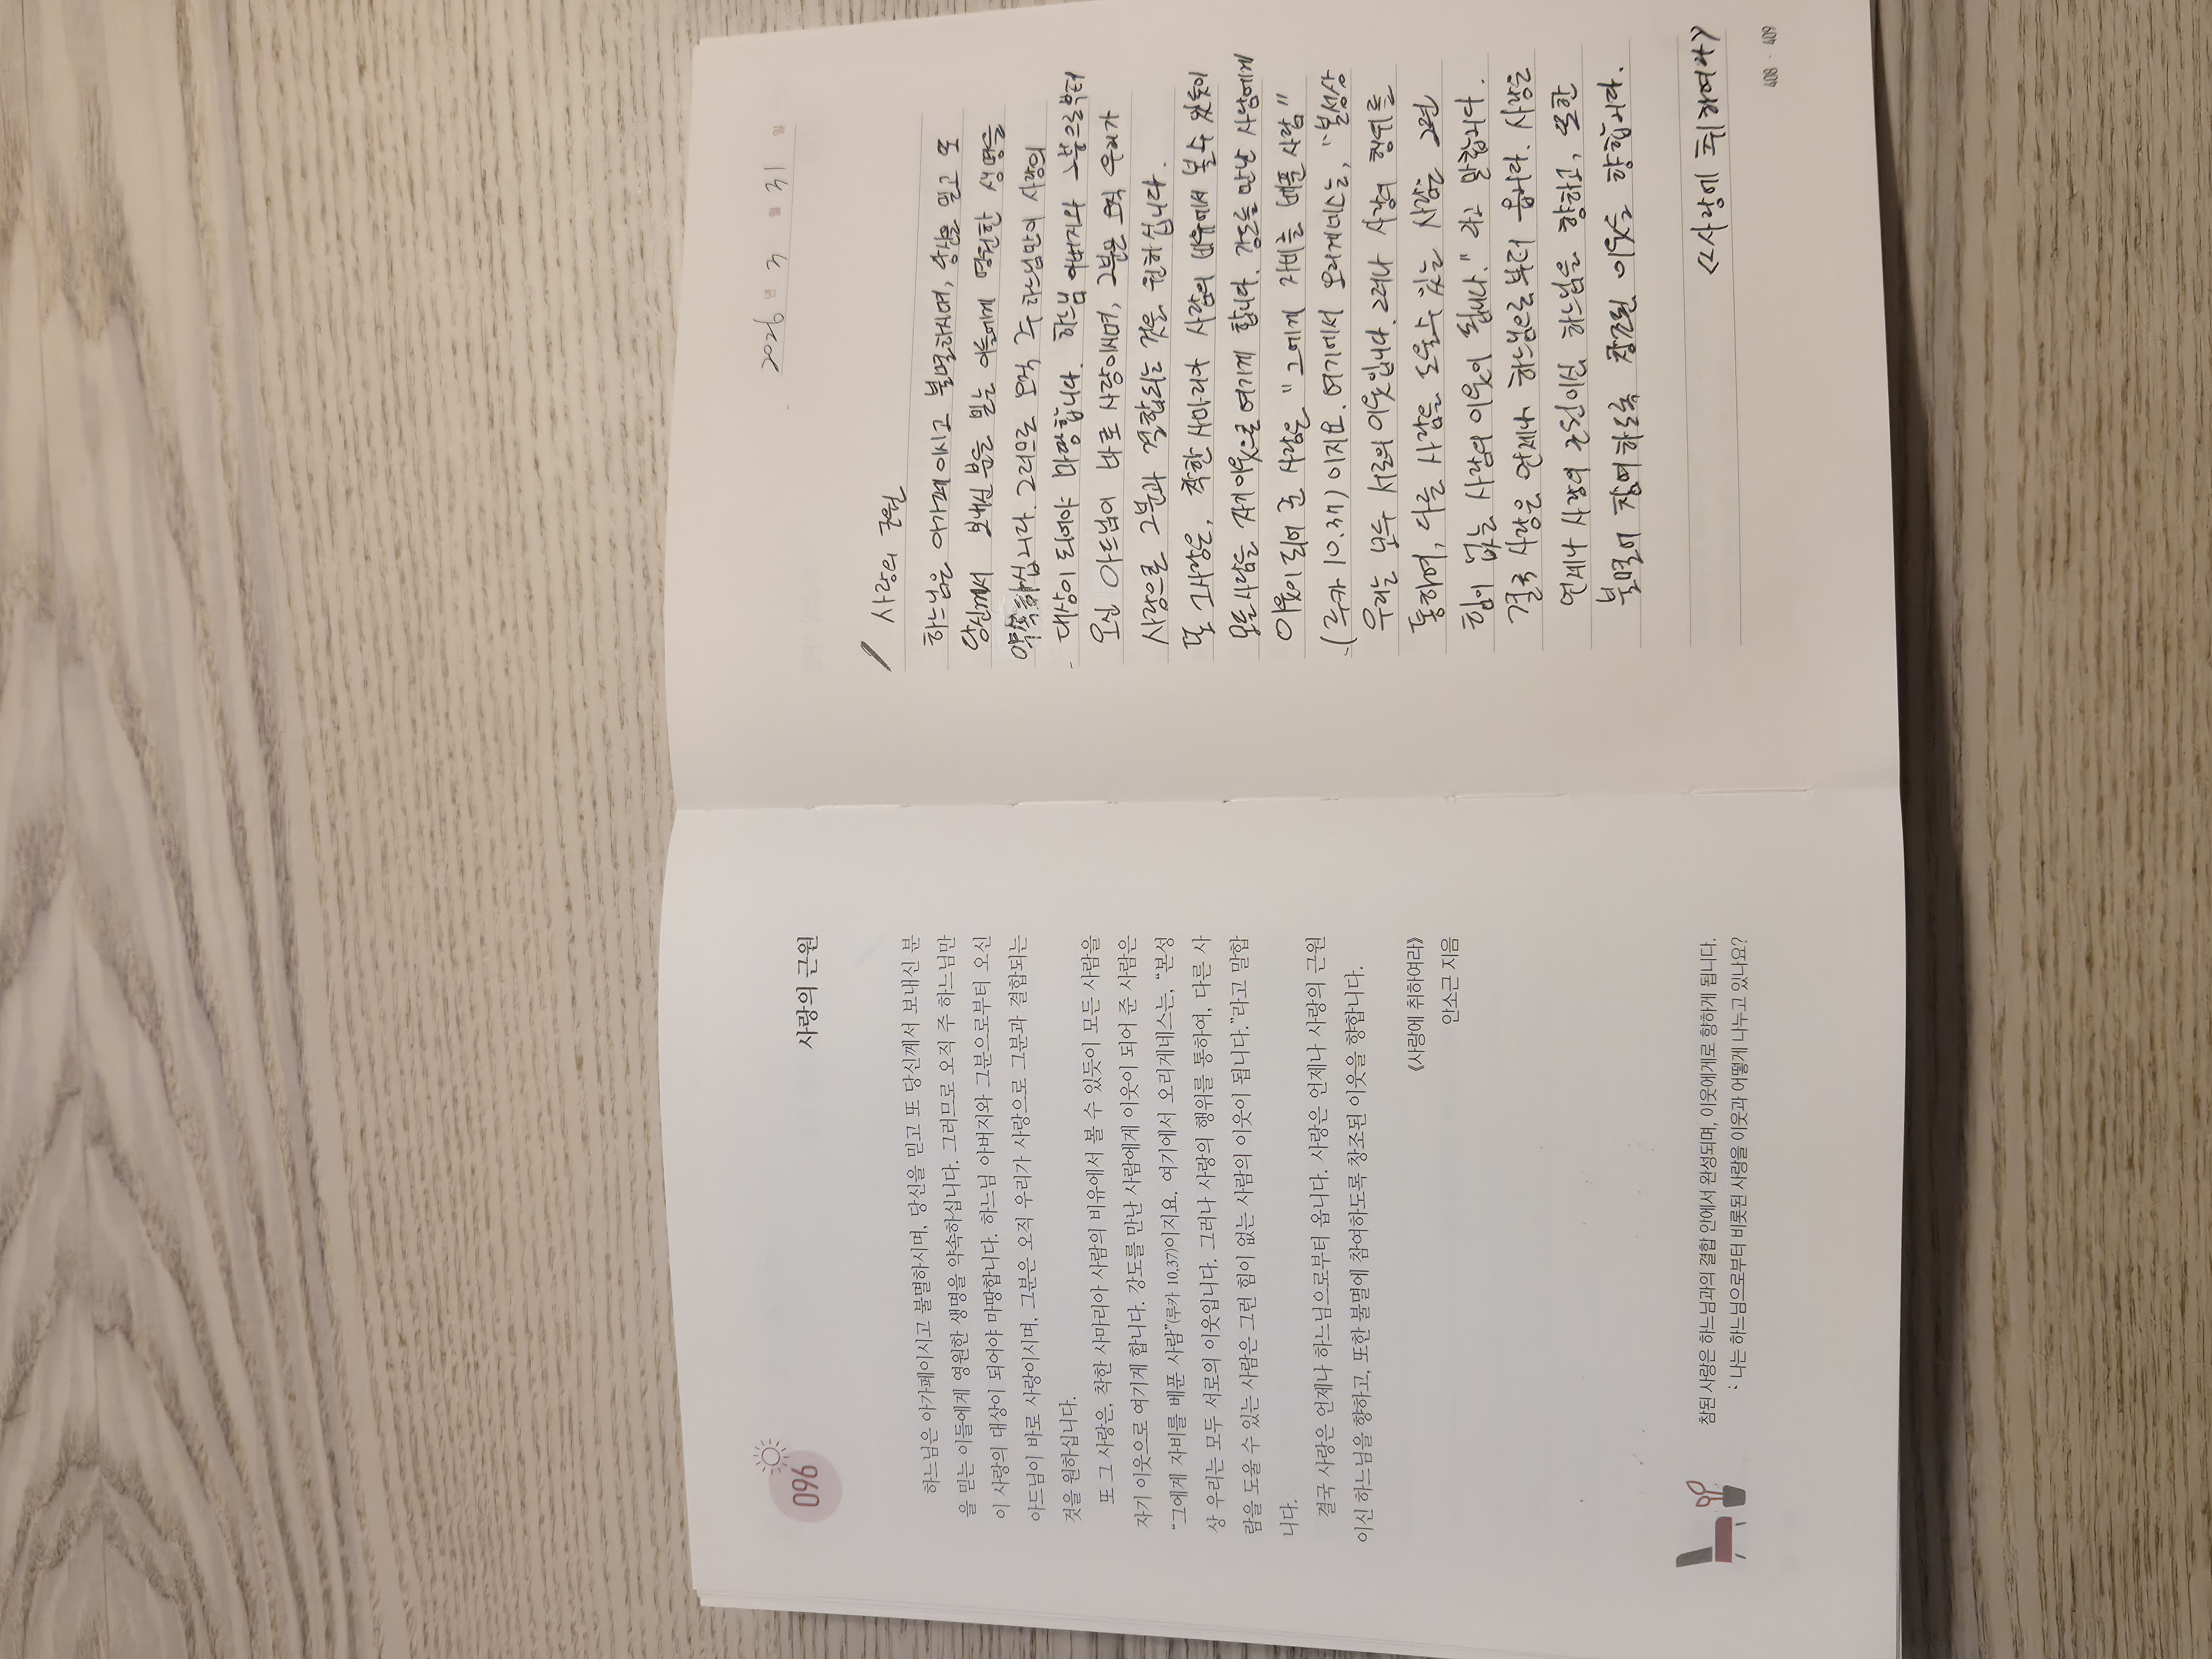 096
사랑의 근원
하느님은 아가페이시고 불멸하시며, 당신을 믿고 또 당신께서 보내신 분
을 믿는 이들에게 영원한 생명을 약속하십니다. 그러므로 오직 주 하느님만
이 사랑의 대상이 되어야 마땅합니다. 하느님 아버지와 그분으로부터 오신
아드님이 바로 사랑이시며, 그분은 오직 우리가 사랑으로 그분과 결합되는
것을 원하십니다.
또 그 사랑은, 착한 사마리아 사람의 비유에서 볼 수 있듯이 모든 사람을
자기 이웃으로 여기게 합니다. 강도를 만난 사람에게 이웃이 되어 준 사람은
“그에게 자비를 베푼 사람”(루카 10,37)이지요. 여기에서 오리게네스는, “본성
상 우리는 모두 서로의 이웃입니다. 그러나 사랑의 행위를 통하여, 다른 사
람을 도울 수 있는 사람은 그런 힘이 없는 사람의 이웃이 됩니다.”라고 말합
니다.
결국 사랑은 언제나 하느님으로부터 옵니다. 사랑은 언제나 사랑의 근원
이신 하느님을 향하고, 또한 불멸에 참여하도록 창조된 이웃을 향합니다.
《사랑에 취하여라》
안소근 지음
참된 사랑은 하느님과의 결합 안에서 완성되며, 이웃에게로 향하게 됩니다.
나는 하느님으로부터 비롯된 사랑을 이웃과 어떻게 나누고 있나요?
2026 년 3 월 31 일
사랑의 근원
하느님은 아가페이시고 불멸하시며, 당신을 믿고 또
당신께서 보내신 분을 믿는 이들에게 영원한 생명을
약속하십니다. 그러므로 오직 주 하느님만이 사랑의
대상이 되어야 마땅합니다. 하느님 아버지와 그분으로부터
오신 아드님이 바로 사랑이시며, 그분은 오직 우리가
사랑으로 그분과 결합되는 것을 원하십니다.
또 그사랑은, 착한 사마리아 사람의 비유에서 볼 수 있듯이
모든 사람을 자기 이웃으로 여기게 합니다. 강도를 만난 사람에게
이웃이 되어 준 사람은 "그에게 자비를 베푼 사람"
(루카 10.37) 이지요. 여기에서 오리게네스는, "본성상
우리는 모두 서로의 이웃입니다. 그러나 사랑의 행위를
통하여, 다른 사람을 도울 수 있는 사람은 그런
힘이 없는 사람의 이웃이 됩니다." 라고 말합니다.
결국 사랑은 언제나 하느님으로부터 옵니다. 사랑은
언제나 사랑의 근원이신 하느님을 향하고, 또한
불멸에 참여하도록 창조된 이웃을 향합니다.
<<사랑에 취하여라>>
408 · 409